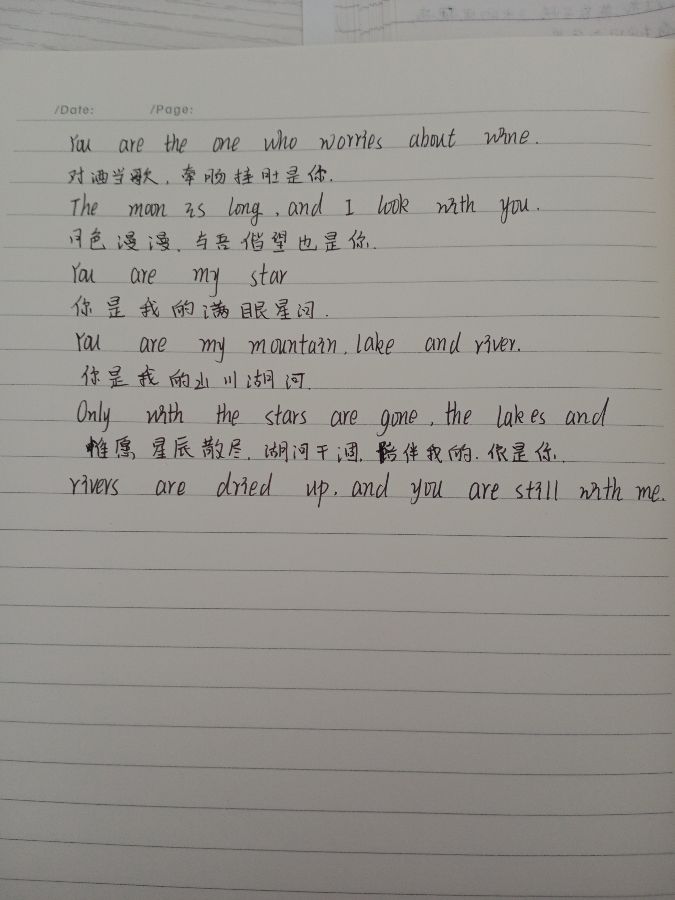 /Date: /Page:
You are the one who worries about wine.
对酒当歌,牵肠挂肚是你.
The moon is long, and I look with you.
月色漫漫,与吾偕望也是你.
You are my star
你是我的满眼星河.
You are my mountain, lake and river.
你是我的山川湖河.
Only with the stars are gone, the lakes and
惟愿星辰散尽,湖河干涸,陪伴我的,依是你.
rivers are dried up, and you are still with me.